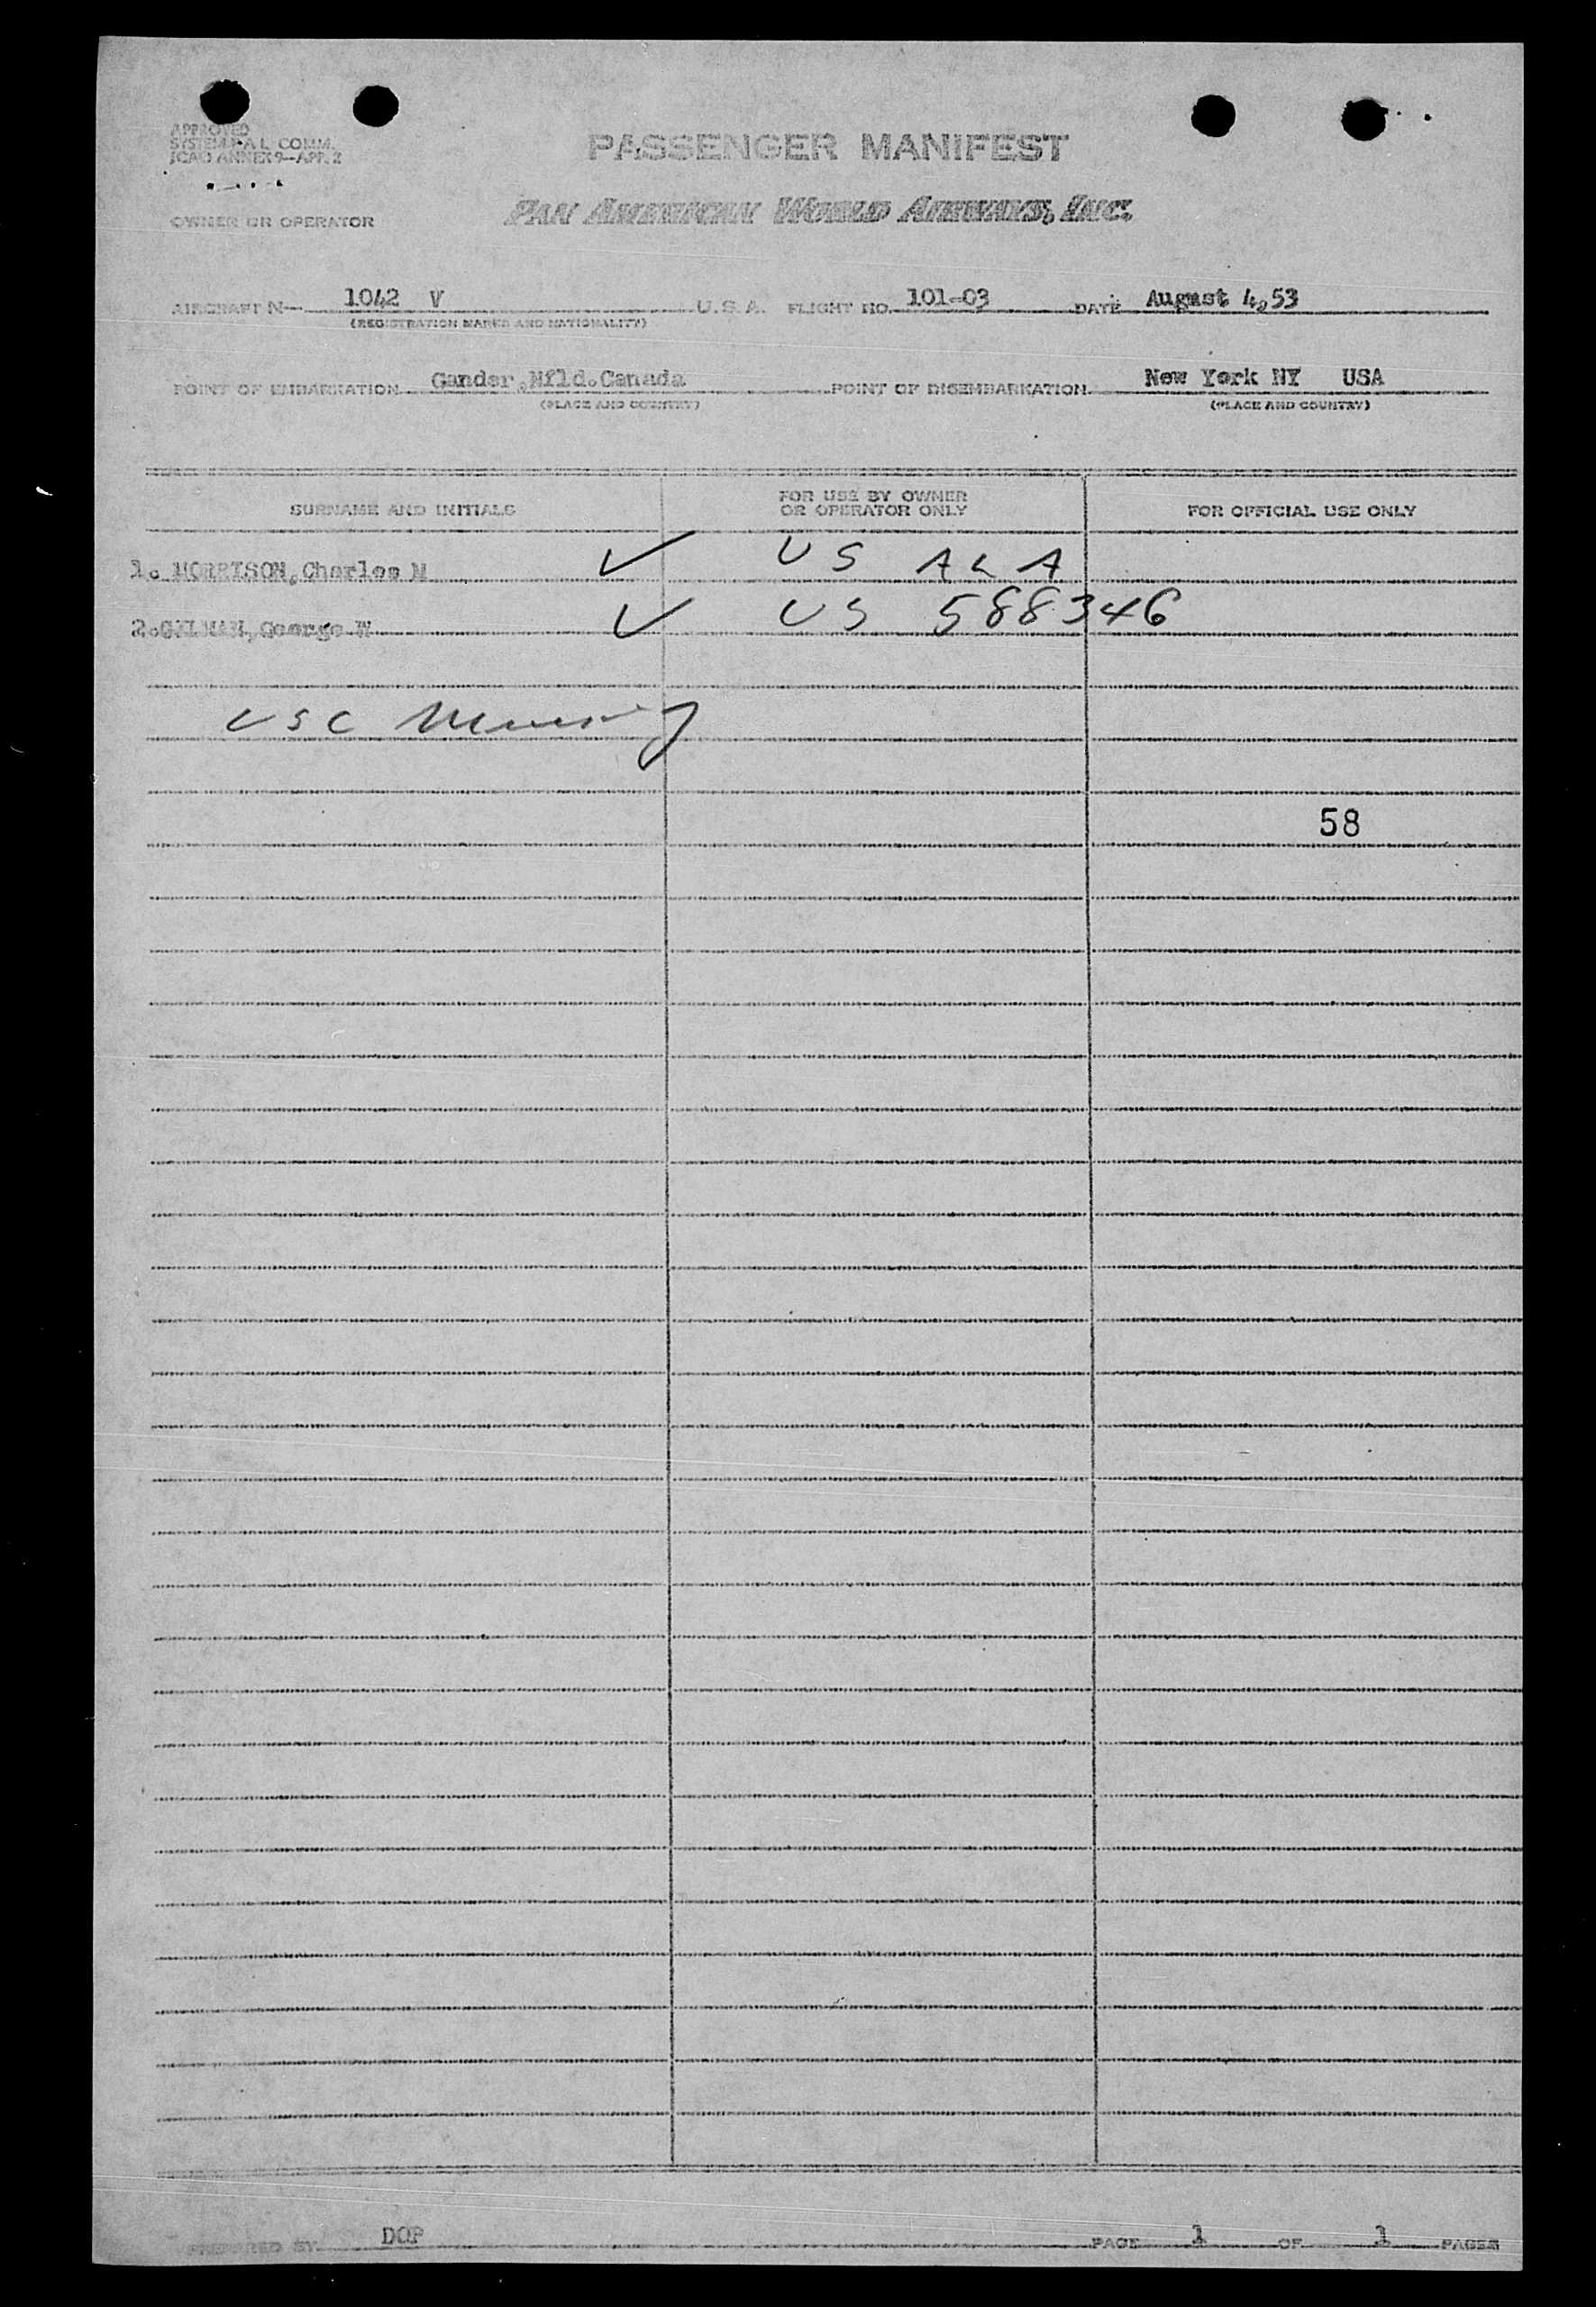 APPROVED
SYSTEM F.A.L. COMM.
ICAO ANNEX 9—APP. 2
PASSENGER MANIFEST
OWNER OR OPERATOR
PAN AMERICAN WORLD AIRWAYS, INC.
AIRCRAFT N— 1042 V U.S.A. FLIGHT NO. 101-03 DATE August 4,53
(REGISTRATION MARKS AND NATIONALITY)
POINT OF EMBARKATION Gander,Nfld.Canada POINT OF DISEMBARKATION New York NY USA
(PLACE AND COUNTRY) (PLACE AND COUNTRY)
SURNAME AND INITIALS FOR USE BY OWNER OR OPERATOR ONLY FOR OFFICIAL USE ONLY
1. MORRISON,Charles M ✓ US ALA
2. George W ✓ US 588346
USC
58
PREPARED BY DOP PAGE 1 OF 1 PAGES